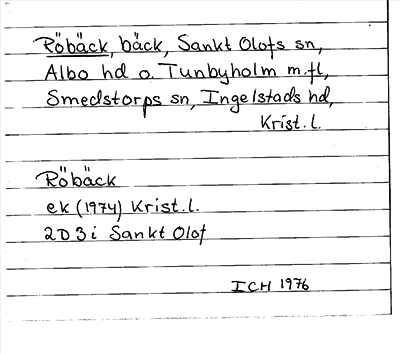 Röbäck, bäck, Sankt Olofs sn,
Albo hd o. Tunbyholm m.fl,
Smedstorps sn, Ingelstads hd,
Krist. l.
Röbäck
ek (1974) Krist. l.
2D3i Sankt Olof
ICH 1976